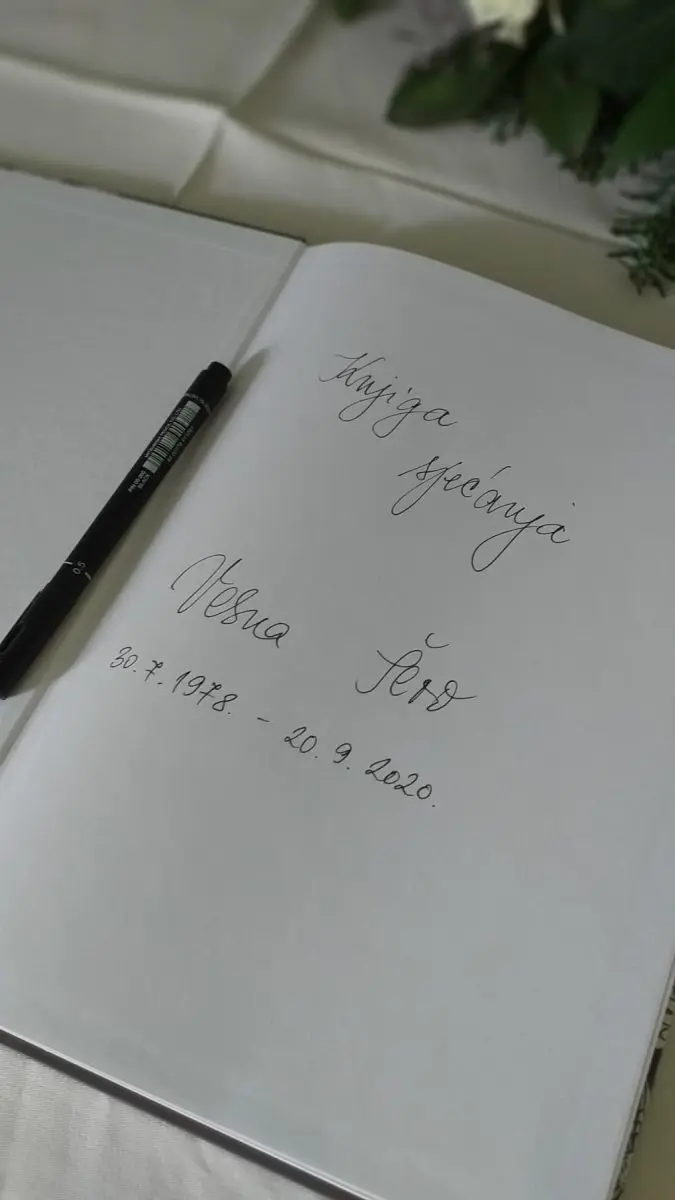 Knjiga
sjećanja
Vesna Šero
30.7.1978. - 20.9.2020.
0.5